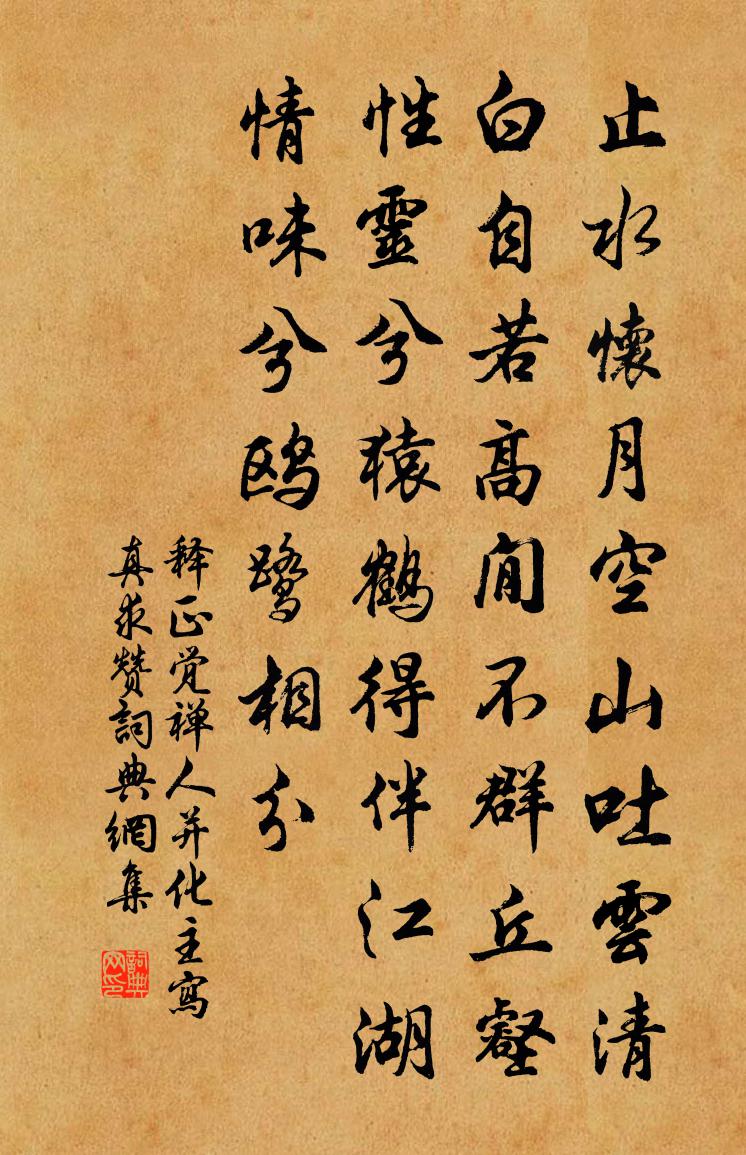 止水懷月空山吐雲清
白自若高閒不群丘壑
性靈兮猿鶴得伴江湖
情味兮鷗鷺相分
释正觉禅人并化主寫
真求赞詞典網集
詞典网印